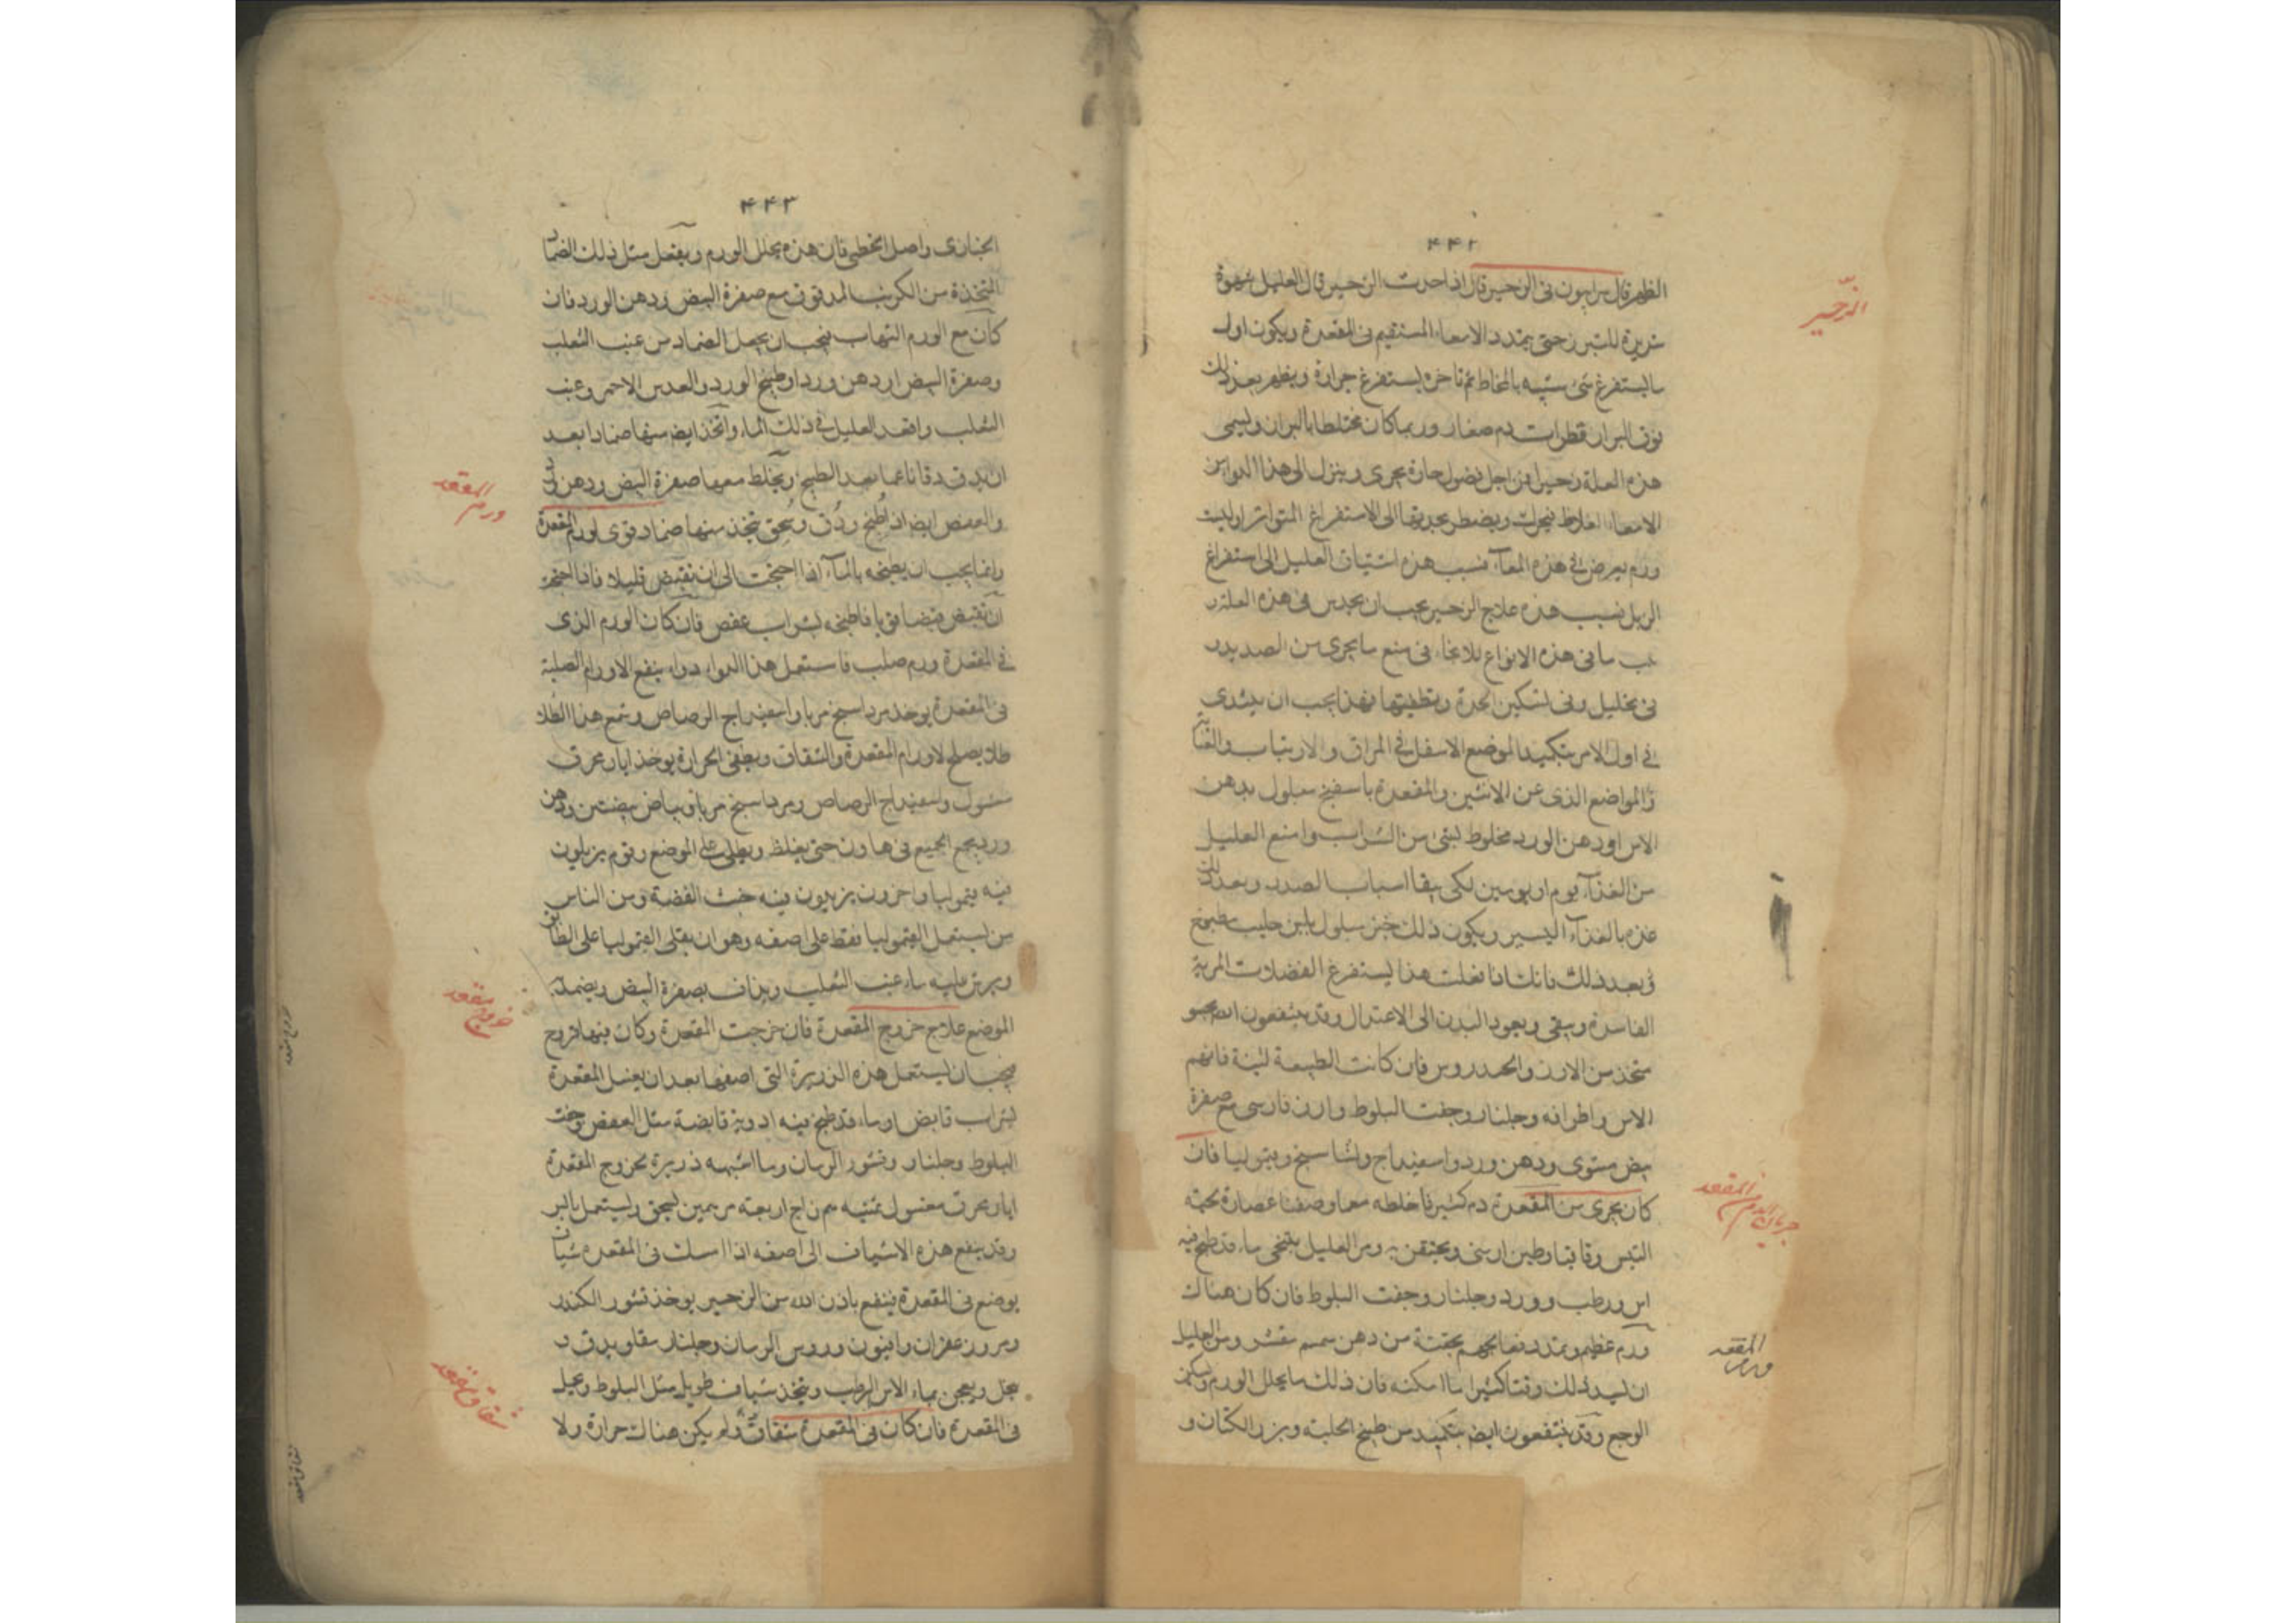 ٤٤٢
الظهر قال سرابيون فى الزحير قال اذا حدث الزحير قال العليل شهوة
شريرة للتبرز حتى يتمدد الامعاء المستقيم فى المقعدة ويكون اول
ما يستفرغ شئ شبيه بالمخاط ثم تاخره يستفرغ حرارة ويظهر بعد ذلك
فوق البراز قطرات دم صغار وربما كان مختلطا بالبراز وليسمى
هذه العلة زحيرا من اجل فضول حارة يجرى وينزل الى هذا
الامعاء اغلاظ فيحرك ويضطر بحدتها الى الاستفراغ المتواتر او ليث
ورم يعرض فى هذه المعآء فسبب هذه اشتياق العليل الى استفراغ
الزبل فسبب هذه علاج الزحير يجب ان يحدس فى هذه العلة و
ما فى هذه الانواع للامعاء فى منع ما يجرى من الصديد و
فى تحليل وفى تسكين الحدة وتطفيتها فهذا يجب ان يبتدى
فى اول الامر بتكميد الموضع الاسفل فى المراق والاربتاب
والمواضع الذى عن الانثيين والمقعدة باسفنج مبلول بدهن
الاس او دهن الورد مخلوط بشئ من الشراب وامنع العليل
من الغذآء يوم او يومين لكى يبقا اسباب الصدد وبعد ذلك
غذه بالغذآء اليسير ويكون ذلك خبز مبلول بلبن حليب مطبوخ
وبعد ذلك فانك اذا فعلت هذا يستفرغ الفضلات المرية
الفاسدة ويبقى ويعود البدن الى الاعتدال وقد ينتفعون
متخذ من الارز والجدروس فان كانت الطبيعة لينة فاتهم
الاس واطرافه وجلنار وجفت البلوط وارز فارسى مع صفرة
بيض مشوى ودهن ورد واسفيداج وشاسخ وقيموليا فان
كان يجرى من المقعدة دم كثير فاخلطه معا وصفنا عصارة لحية
التيس وقاقيا وطين ارمنى ويحتقن به ومر العليل يستنجى بماء قد طبخ فيه
اس رطب وورد وجلنار وجفت البلوط فان كان هناك
ورم عظيم وتمدد فعالجهم بحقنة من دهن سمسم مقشر ومر العليل
ان ليبد ذلك وقتا كثيرا ما امكنه فان ذلك مما يحلل الورم ويسكن
الوجع وقد ينتفعون ايضا بتكميد من طبيخ الحلبة وبزر الكتان و
الزحير
جريان الدم من المقعد
ورم المقعد
٤٤٣
الخبازى واصل الخطمى فان هذه يحلل الورم ويفعل مثل ذلك الضماد
المتخذة من الكرنب المدقوق مع صفرة البيض ودهن الورد فان
كان مع الورم التهاب فيجب ان يجعل الضماد من عنب الثعلب
وصفرة البيض او دهن ورد او طبيخ الورد والعدس الاحمر وعنب
الثعلب واقعد العليل فى ذلك الماء واتخذ ايضا منها ضمادا بعد
ان يدق دقا ناعما بعد الطبخ ويخلط معها صفرة البيض ودهن ورد
والعفص ايضا اذا طبخ ودق وسحق يتخذ منها ضماد قوى لورم المقعدة
وانما يجب ان يطبخه بالمآء اذا احتجت الى ان تقبض قليلا فاذا احتجت
ان تقبض قبضا قويا فاطبخه بشراب عفص فان كان الورم الذى
فى المقعدة ورم صلب فاستعمل هذا الدواء دواء ينفع الاورام الصلبة
فى المقعدة يوخذ مرداسنج مربا واسفيداج الرصاص وشمع هذا الطلا
طلا يصلح لاورام المقعدة والشقاق ويطفى الحرارة يوخذ ابار محرق
مغسول واسفيداج الرصاص ومرداسنج مربا وبياض بيضتين ودهن
ورد يجمع الجميع فى هاون حتى يغلظ ويطلى على الموضع وقوم يزيدون
فيه قيموليا واخرون يزيدون فيه خبث الفضة ومن الناس
من يستعمل القيموليا فقط على اصفه وهو ان يقلى القيموليا على الطابق
ويرش عليه ماء عنب الثعلب ويداف بصفرة البيض ويضمد به
الموضع علاج خروج المقعدة فان خرجت المقعدة وكان فيها قروح
فيجب ان يستعمل هذه الذريرة التى اصفها بعد ان يغسل المقعدة
بشراب قابض او ماء قد طبخ فيه ادوية قابضة مثل العفص وجفت
البلوط وجلنار وقشور الرمان وما اشبهه ذريرة لخروج المقعدة
ابار محرق مغسول ثمنيه دراهم زاج اربعة درهمين يسحق ويستعمل
وقد ينفع هذه الاشياف الى اصفه اذا امسك فى المقعدة شياف
يوضع فى المقعدة ينفع باذن الله من الزحير يوخذ قشور الكندر
ومر وزعفران وافيون وورس الرمان وجلنار سقا ويدق و
ينخل ويعجن بماء الاس الرطب ويتخذ شياف طويل مثل البلوط ويحمل
فى المقعدة فان كان فى المقعدة شقاق ولم يكن هناك حرارة ولا
ورم المقعد
خروج مقعد
شقاق مقعد
خروج مقعد
شقاق مقعد